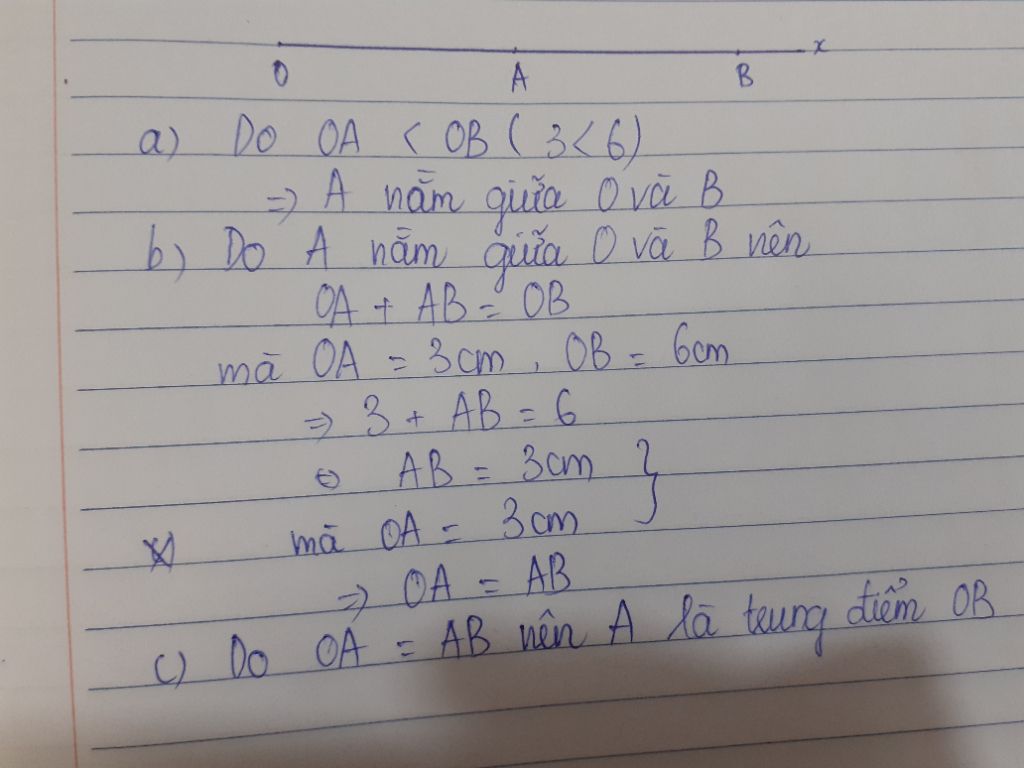 O A B x
a) Do OA < OB ( 3 < 6)
=> A nằm giữa O và B
b) Do A nằm giữa O và B nên
OA + AB = OB
mà OA = 3cm, OB = 6cm
=> 3 + AB = 6
⇔ AB = 3cm }
mà OA = 3cm
=> OA = AB
c) Do OA = AB nên A là trung điểm OB